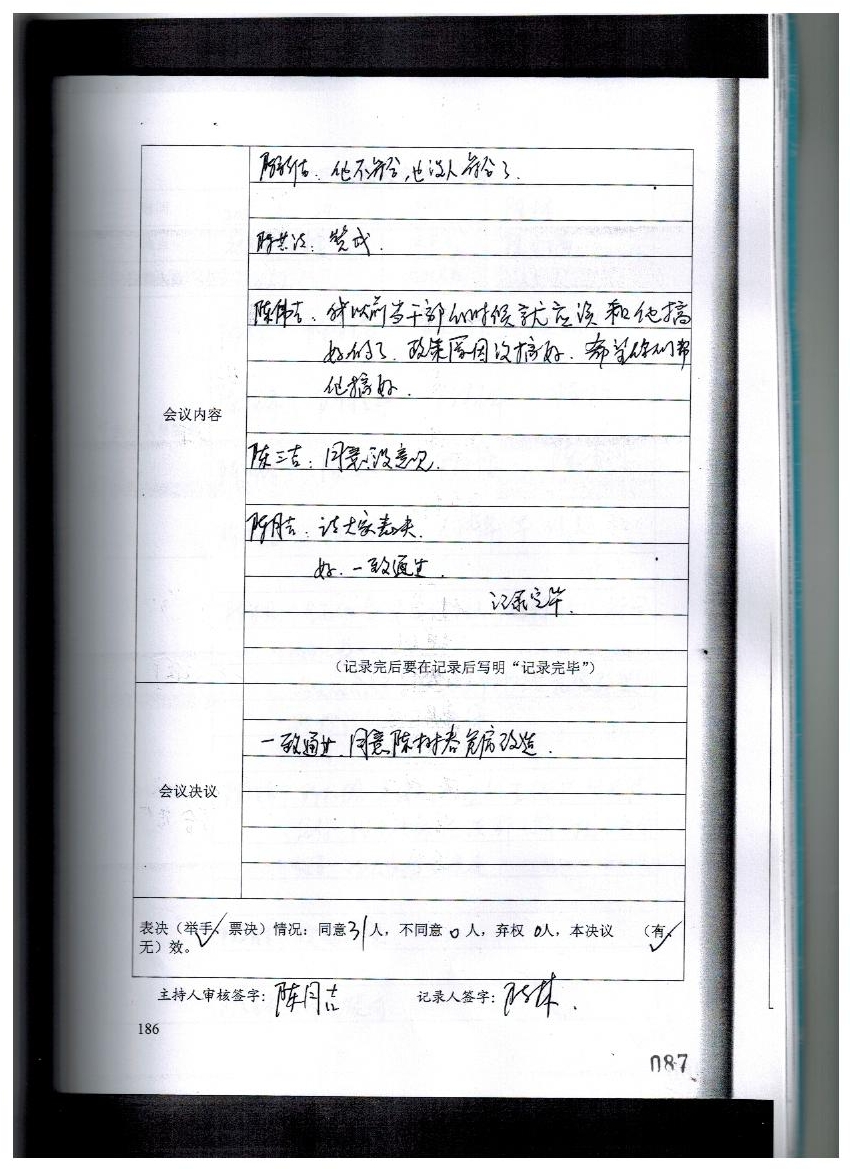 他不符合,也没人符合了.
赞成.
会议内容
陈伟吉:我以前当干部的时候就应该和他搞
好的了.政策原因没搞好.希望你们帮
他搞好.
陈三吉:同意,没意见.
陈月吉:请大家表决.
好.一致通过.
记录完毕.
(记录完后要在记录后写明“记录完毕”)
会议决议
一致通过.同意陈树春危房改造.
表决(举手、票决)情况:同意31人,不同意0人,弃权0人,本决议 (有、
无)效。
主持人审核签字:陈月吉 记录人签字:
186
087